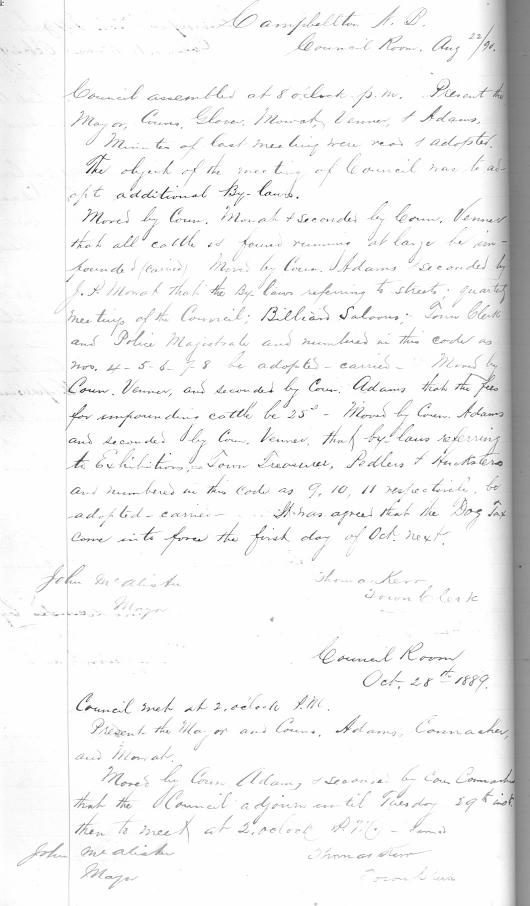 Campbellton N. B.
Council Room, Aug 22/90.
Council assembled at 8 oclock p.m. Present the
Mayor, Couns, Glover, Mowat, Venner, & Adams.
Minutes of last meeting were read & adopted.
The object of the meeting of Council was to ad-
opt additional By-laws.
Moved by Coun. Mowat & seconded by Coun. Venner
that all cattle if found running at large be im-
pounded (carried) Moved by Coun. Adams & seconded by
J. P. Mowat that the By-laws referring to streets; quarterly
meetings of the Council; Billiard Saloons; Town Clerk
and Police Magistrate and numbered in this code as
nos. 4-5-6-7-8 be adopted - carried - Moved by
Coun. Venner, and seconded by Coun. Adams that the fees
for impounding cattle be 25c - Moved by Coun. Adams
and seconded by Coun. Venner, that by-laws referring
to Exhibitions, Town Treasurer, Pedlers & Hucksters
and numbered in this code as 9, 10, 11 respectively, be
adopted - carried - It was agreed that the Dog Tax
come into force the first day of Oct. next.
John McAlister Thomas Kerr
Mayor Town Clerk
Council Room
Oct. 28th 1889.
Council met at 2. oclock P.M.
Present the Mayor and Couns. Adams, Connacher,
and Mowat.
Moved by Coun Adams & seconded by Coun Connacher
that the Council adjourn until Tuesday 29th inst.
then to meet at 2. oclock P.M. -
John McAlister Thomas Kerr
Mayor Town Clerk